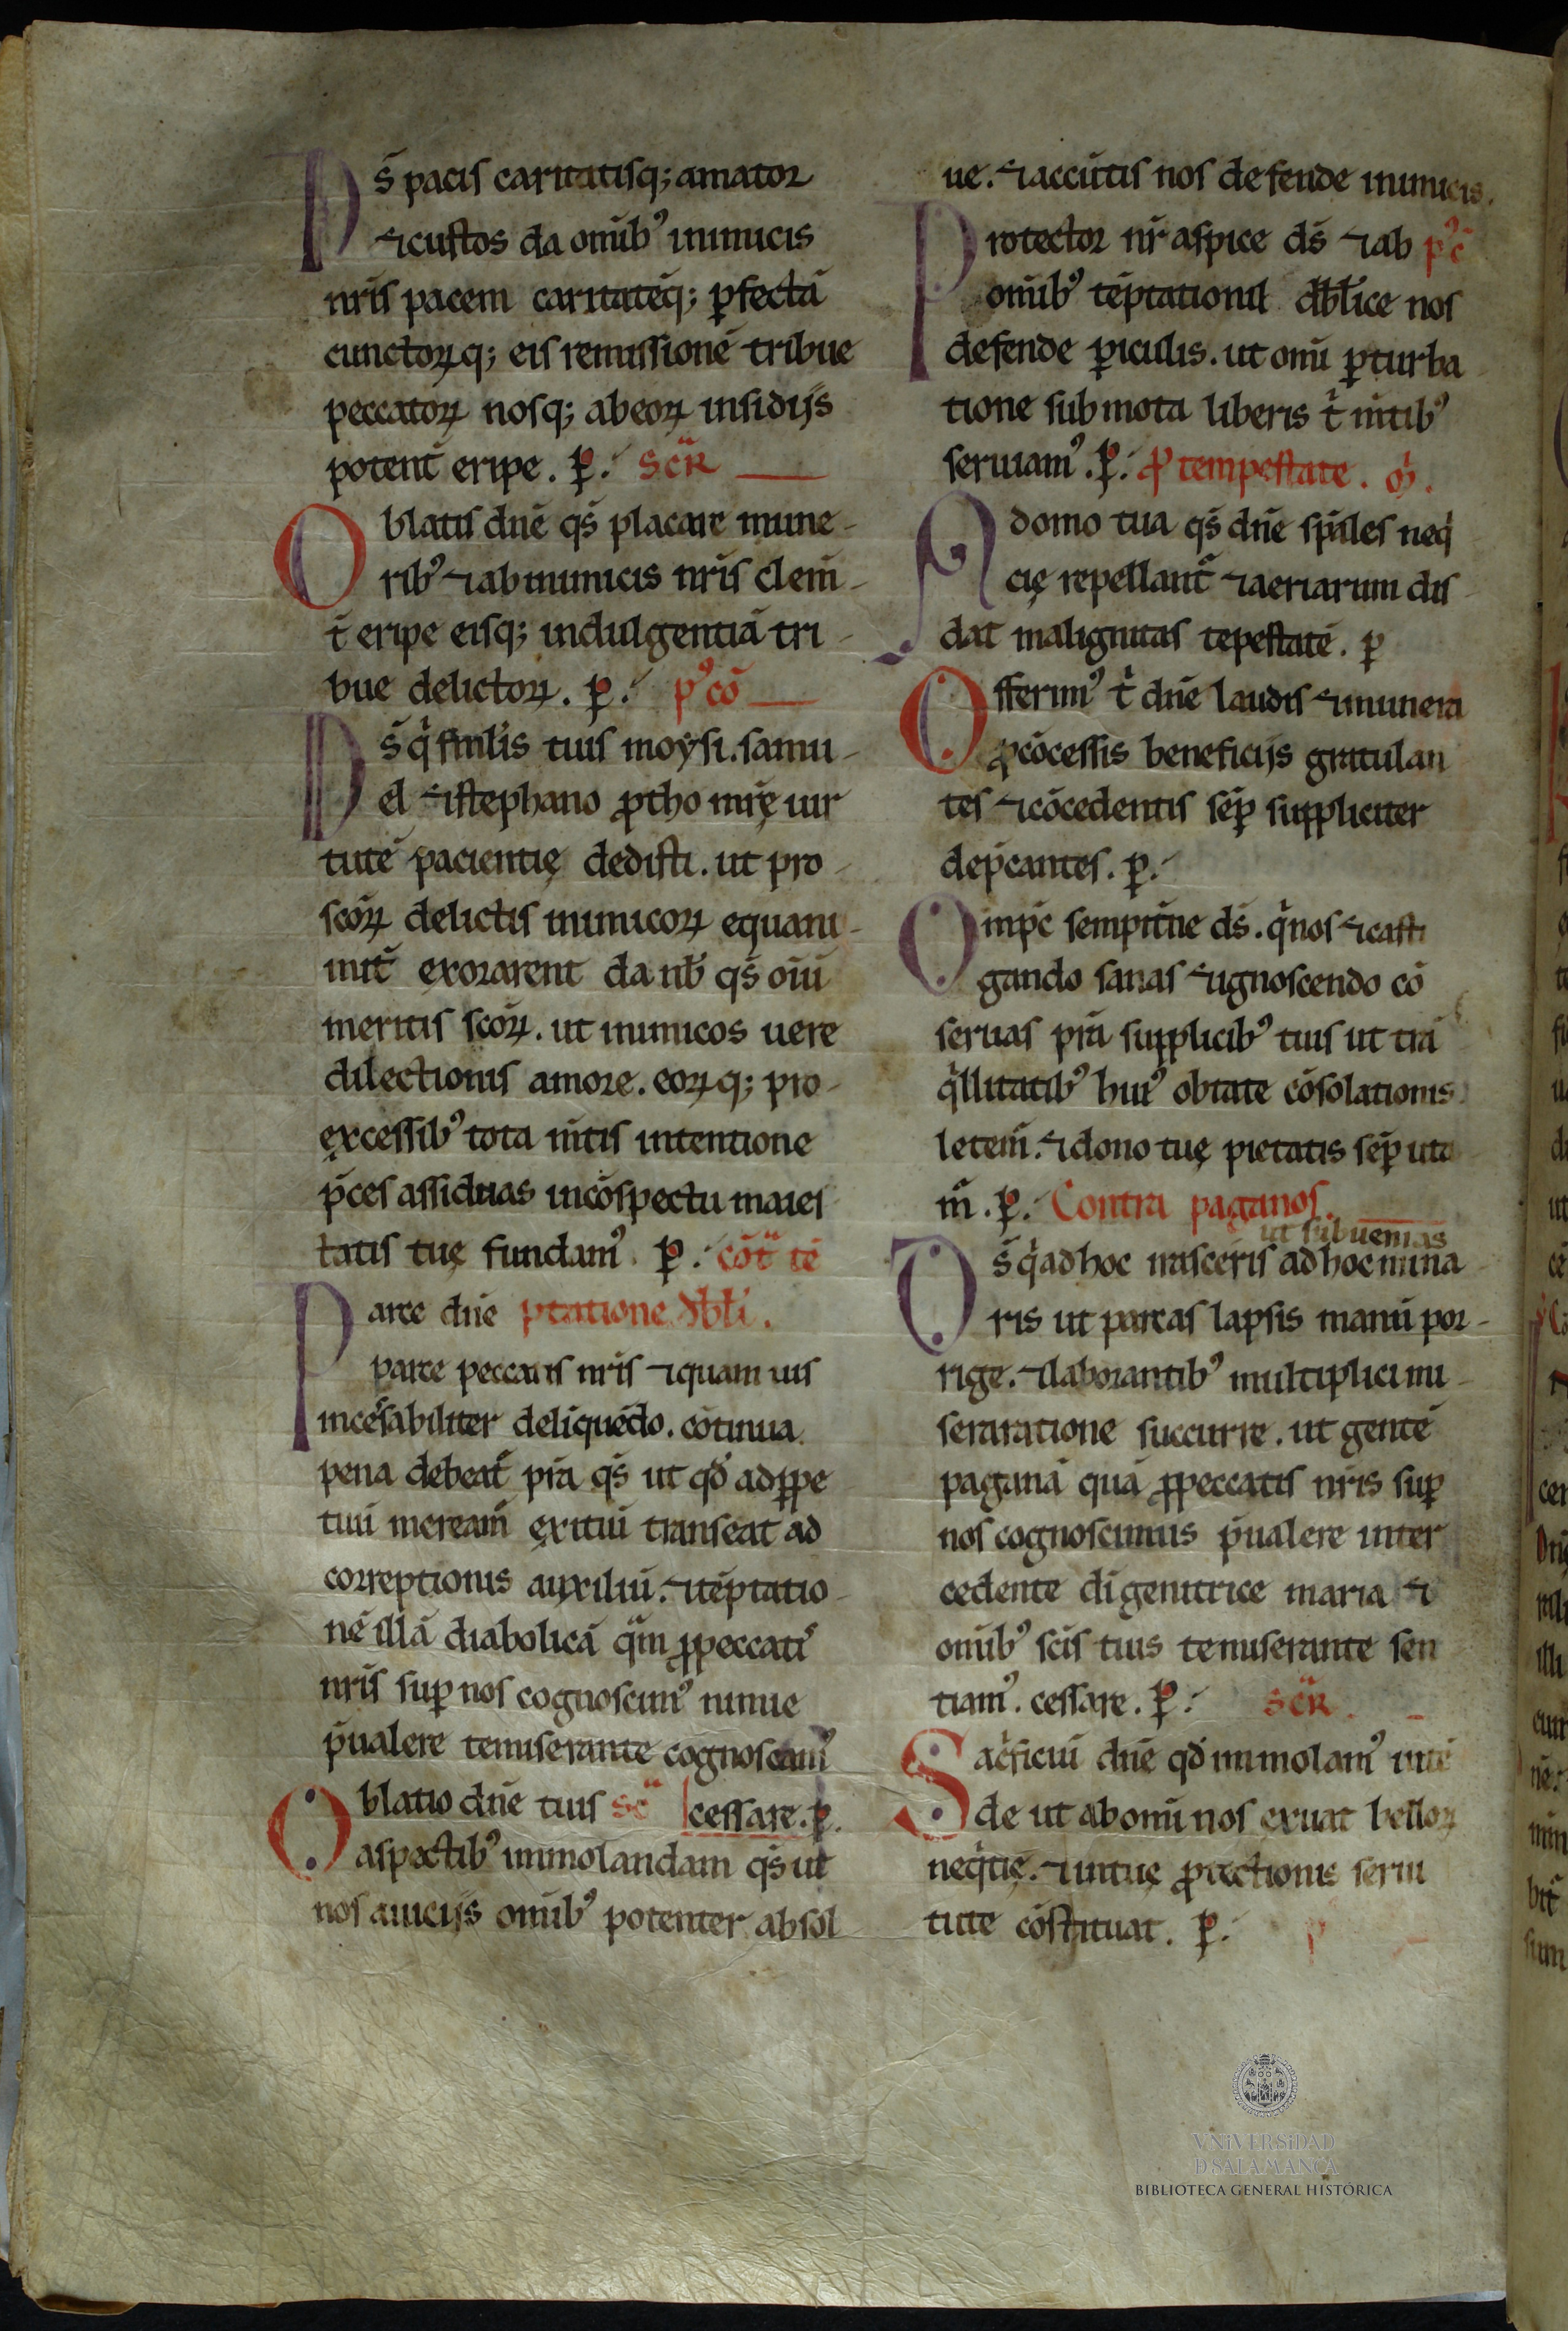 Ds̄ pacis caritatisq; amator
⁊custos da om̄ib⁹ inimicis
nr̄is pacem caritatēq; ꝑfectā
cunctoꝝq; eis remissionē tribue
peccatoꝝ nosq; abeoꝝ insidijs
potent̄ eripe. ꝑ. Sc̄R
Oblatis dn̄e qs̄ placare mune-
rib⁹ ⁊ab inimicis nr̄is clem̄-
t̄ eripe eisq; indulgentiā tri-
bue delictoꝝ. ꝑ. p⁹cō
Ds̄ q̇ fml̄is tuis moysi. samu-
el ⁊stephano ꝓtho mr̄ę uir
tutē pacientię dedisti. ut pro-
scōꝝ delictis inimicoꝝ equani-
mit̄ exorarent da nb̄ qs̄ oīū
meritis scōꝝ. ut inimicos uere
dilectionis amore. eoꝝq; pro-
excessib⁹ tota m̄tis intentione
p̄ces assiduas incōspectu maies
tatis tuę fundam⁹. ꝑ. cōt̄ tē
Parce dn̄e ptatione db̄li.
parce peccatis nr̄is ⁊quam uis
incēsabiliter deliquēdo. cōtinua
pena debeat̄ pr̄a qs̄ ut qđ adꝑpe
tuū meream̄ exitiū transeat ad
correptionis auxiliū. ⁊tēptatio-
nē illā diabolicā q̄m ꝓpeccati⁹
nr̄is suꝑ nos cognoscim⁹ ninue
p̄ualere temiserante cognoscam⁹
Oblatio dn̄e tuis sc̄ cessare. ꝑ.
aspectib⁹ immolandam qs̄ ut
nos auicijs om̄ib⁹ potenter absol
ue. ⁊accūtis nos defende inimicis.
Protector nr̄ aspice ds̄ ⁊ab p⁹c̄
om̄ib⁹ tēptationū db̄lice nos
defende ꝑiculis. ut om̄i ꝑturba-
tione submota liberis t̄ m̄tib⁹
seruiam⁹. ꝑ. ꝓ tempestate. oꝝ.
A domo tua qs̄ dn̄e sp̄ales neq̇
cię repellant̄ ⁊aeriarum dis-
dat malignitas tepestatē. ꝑ
Offerim⁹ t̄ dn̄e laudis ⁊munera
ꝓcōcessis beneficijs gratulan
tes ⁊cōcedentis sēꝑ suppliciter
dep̄cantes. ꝑ.
Omp̄c sempit̄ne ds̄. q̇nos ⁊casti
gando sanas ⁊ignoscendo cō
seruas pr̄a supplicib⁹ tuis ut trā
q̇llitatib⁹ hui⁹ obtate cōsolationis
letem̄. ⁊dono tuę pietatis sēꝑ uta
m̄. ꝑ. Contra paganos.
ut subuenias
Ds̄ q̇ adhoc irasceris ad hoc mina
ris ut parcas lapsis manū por-
rige. ⁊laborantib⁹ multiplici mi-
seraratione succurre. ut gentē
paganā quā ꝓpeccatis nr̄is suꝑ
nos cognoscimus p̄ualere inter
cedente di genitrice maria ⁊
om̄ib⁹ sc̄is tuis temiserante sen
tiam⁹. cessare. ꝑ. sc̄R.
Sac̄ficiū dn̄e qđ immolam⁹ intē
de ut abom̄i nos exuat belloꝝ
neq̇tię. ⁊intuę ꝓtectionis seriu
tute cōstituat. ꝑ.
VNiVERSiDAD
D SALAMANCA
BIBLIOTECA GENERAL HISTÓRICA